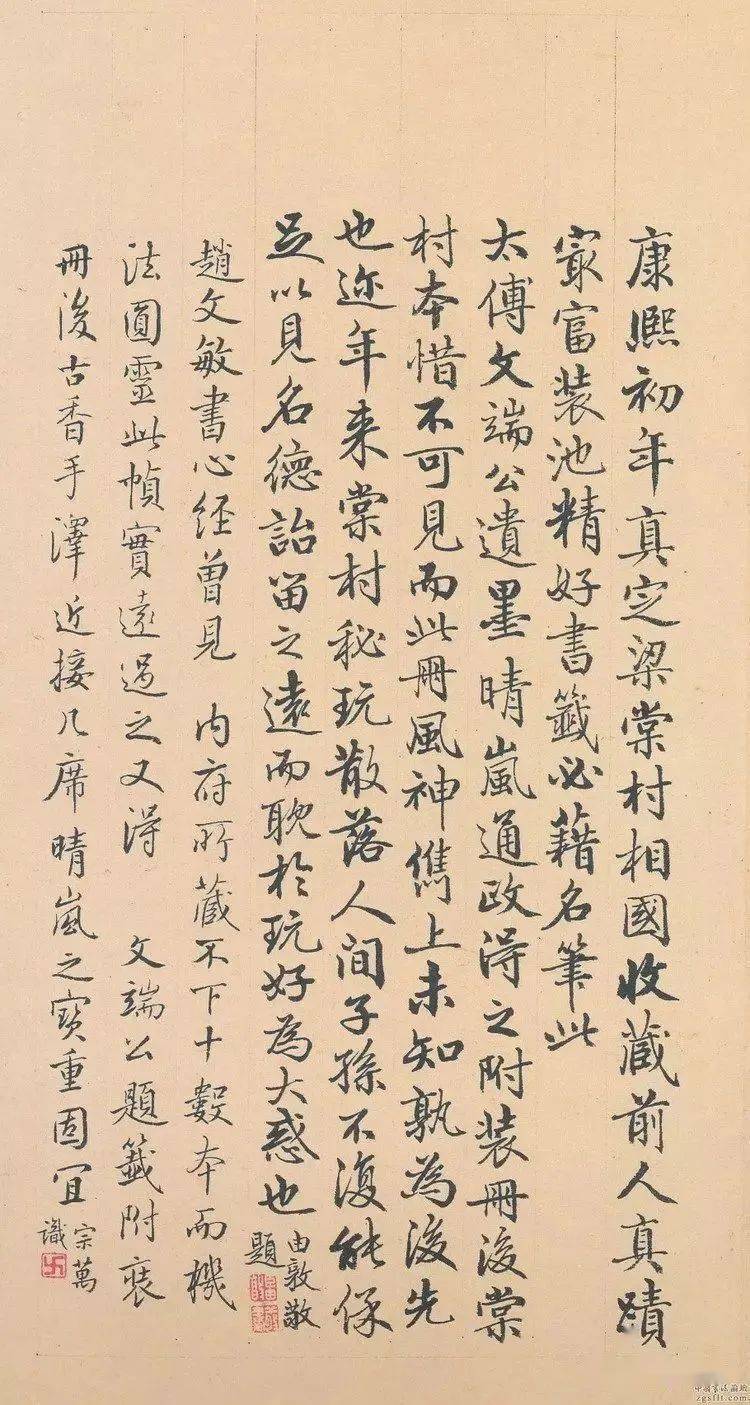 康熙初年真定梁棠村相國收藏前人真蹟
冣富裝池精好書籤必藉名筆此
太傅文端公遺墨晴嵐通政得之附裝冊後棠
村本惜不可見而此冊風神儁上未知孰為後先
也迩年来棠村秘玩散落人间子孫不復能保
足以見名德詒留之遠而耽於玩好為大惑也
由敦敬
題
趙文敏書心经曽見 内府所藏不下十數本而機
法圓靈此幀實遠過之又得 文端公題籤附裝
冊後古香手澤近接几席晴嵐之寶重固宜
宗萬
識
卍
zgsflt.com